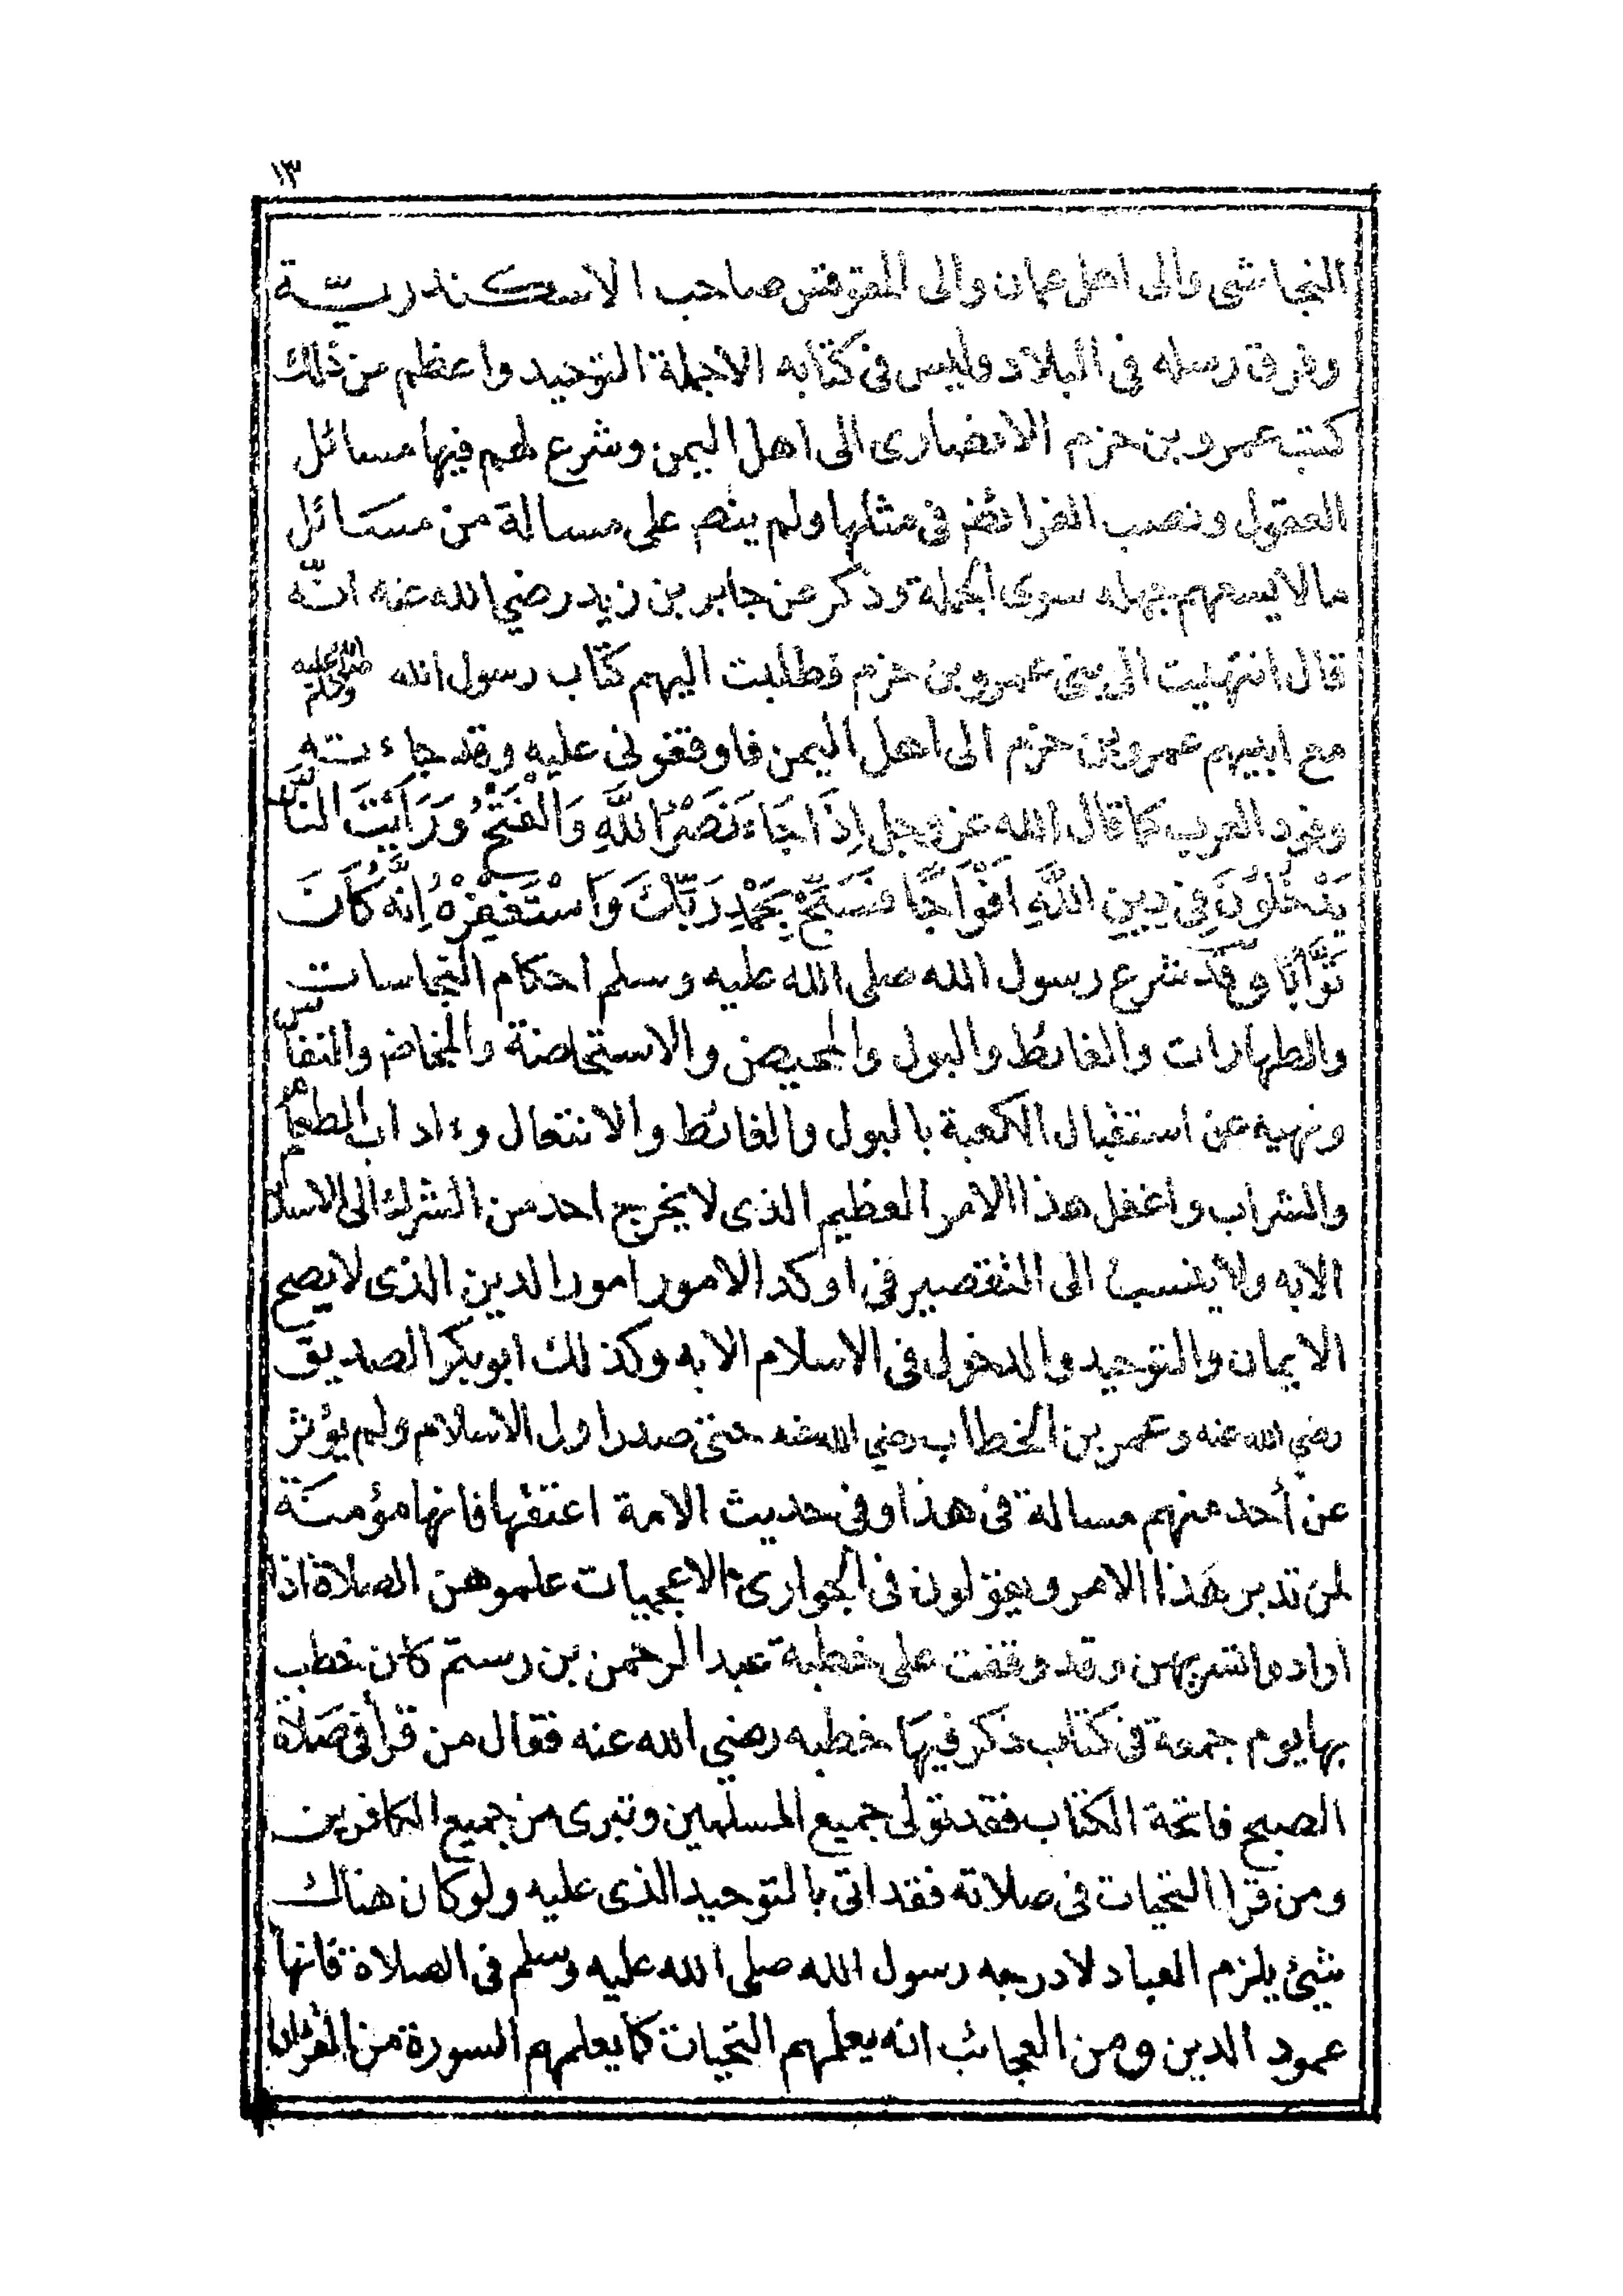 ١٣
النجاشى والى اهل عمان والى المقوقس صاحب الاسكندريّة
وفرق رسله فى البلاد وليس فى كتابه الاجملة التوحيد واعظم من ذلك
كتب عمرو بن حزم الانصارى الى اهل اليمن وشرع لهم فيها مسائل
العقول ونصب الفرائض فى مثلها ولم ينص على مسالة من مسائل
مالايسعهم جهله سوى الجملة وذكر عن جابر بن زيد رضي الله عنه انّه
قال انتهيت الى بنى عمرو بن حزم فطلبت اليهم كتاب رسول الله صلى الله عليه وسلم
مع ابيهم عمرو بن حزم الى اهل اليمن فاوقفونى عليه وقد جاءته
وفود العرب كما قال الله عز وجل اِذَا جَاءَ نَصْرُ اللَّهِ وَالْفَتْحُ وَرَاَيْتَ النَّاسَ
يَدْخُلُونَ فِى دِينِ اللَّهِ اَفْوَاجًا فَسَبِّحْ بِحَمْدِ رَبِّكَ وَاسْتَغْفِرْهُ اِنَّهُ كَانَ
تَوَّابًا وقد شرع رسول الله صلى الله عليه وسلم احكام النجاسات
والطهارات والغائط والبول والحيض والاستحاضة والمخاض والنفاس
ونهيه عن استقبال الكعبة بالبول والغائط والانتعال وءاداب الطعام
والشراب واغفل هذا الامر العظيم الذى لايخرج احد من الشرك الى الاسلا
الابه ولا ينسب الى التقصير فى اوكد الامور امور الدين الذى لايصح
الايمان والتوحيد والدخول فى الاسلام الابه وكذلك ابوبكر الصديق
رضي الله عنه وعمر بن الخطاب رضي الله عنه حتى صدر اول الاسلام ولم يؤثر
عن أحد منهم مسالة فى هذا وفى حديث الامة اعتقها فانها مؤمنة
لمن تدبر هذا الامر ويقولون فى الجوارى الاعجميات علموهن الصلاة اذا
ارادوا تسريهن وقد وقفت على خطبة عبد الرحمن بن رستم كان خطب
بها يوم جمعة فى كتاب ذكر فيها خطبه رضي الله عنه فقال من قرأ فى صلاة
الصبح فاتحة الكتاب فقد تولى جميع المسلمين وتبرى من جميع الكافرين
ومن قرا التحيات فى صلاته فقد اتى بالتوحيد الذى عليه ولو كان هناك
شيئ يلزم العباد لادرجه رسول الله صلى الله عليه وسلم فى الصلاة فانها
عمود الدين ومن العجائب انه يعلمهم التحيات كما يعلمهم السورة من القرءان